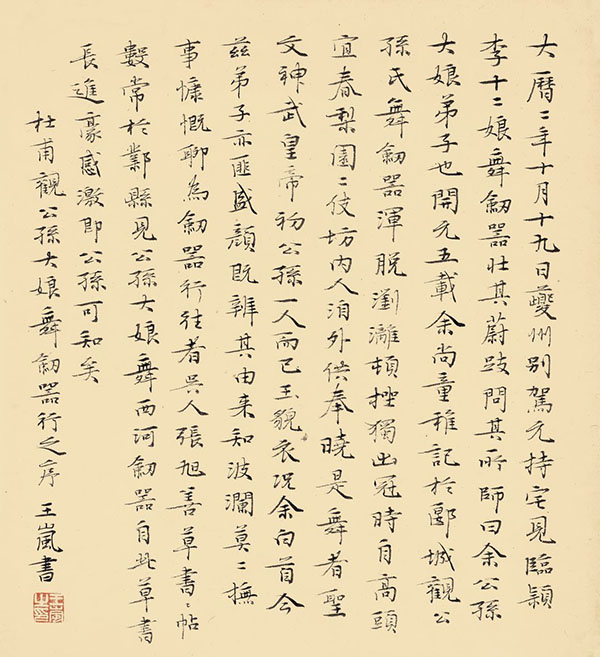 大曆二年十月十九日夔州別駕元持宅見臨潁
李十二娘舞釼器壯其蔚跂問其所師曰余公孫
大娘弟子也開元五載余尚童稚記於郾城觀公
孫氏舞釼器渾脫瀏灕頓挫獨出冠時自高頭
宜春梨園二伎坊內人洎外供奉曉是舞者聖
文神武皇帝初公孫一人而已玉貌衣況余白首今
茲弟子亦匪盛顏既辨其由來知波瀾莫二撫
事慷慨聊為釼器行往者吳人張旭善草書〻帖
數常於鄴縣見公孫大娘舞西河釼器自此草書
長進豪感激即公孫可知矣
杜甫觀公孫大娘舞釼器行之序 王嵐書